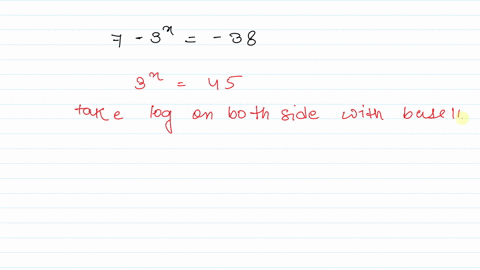 7 - 3ˣ = - 38
3ˣ = 45
take log on both side with base